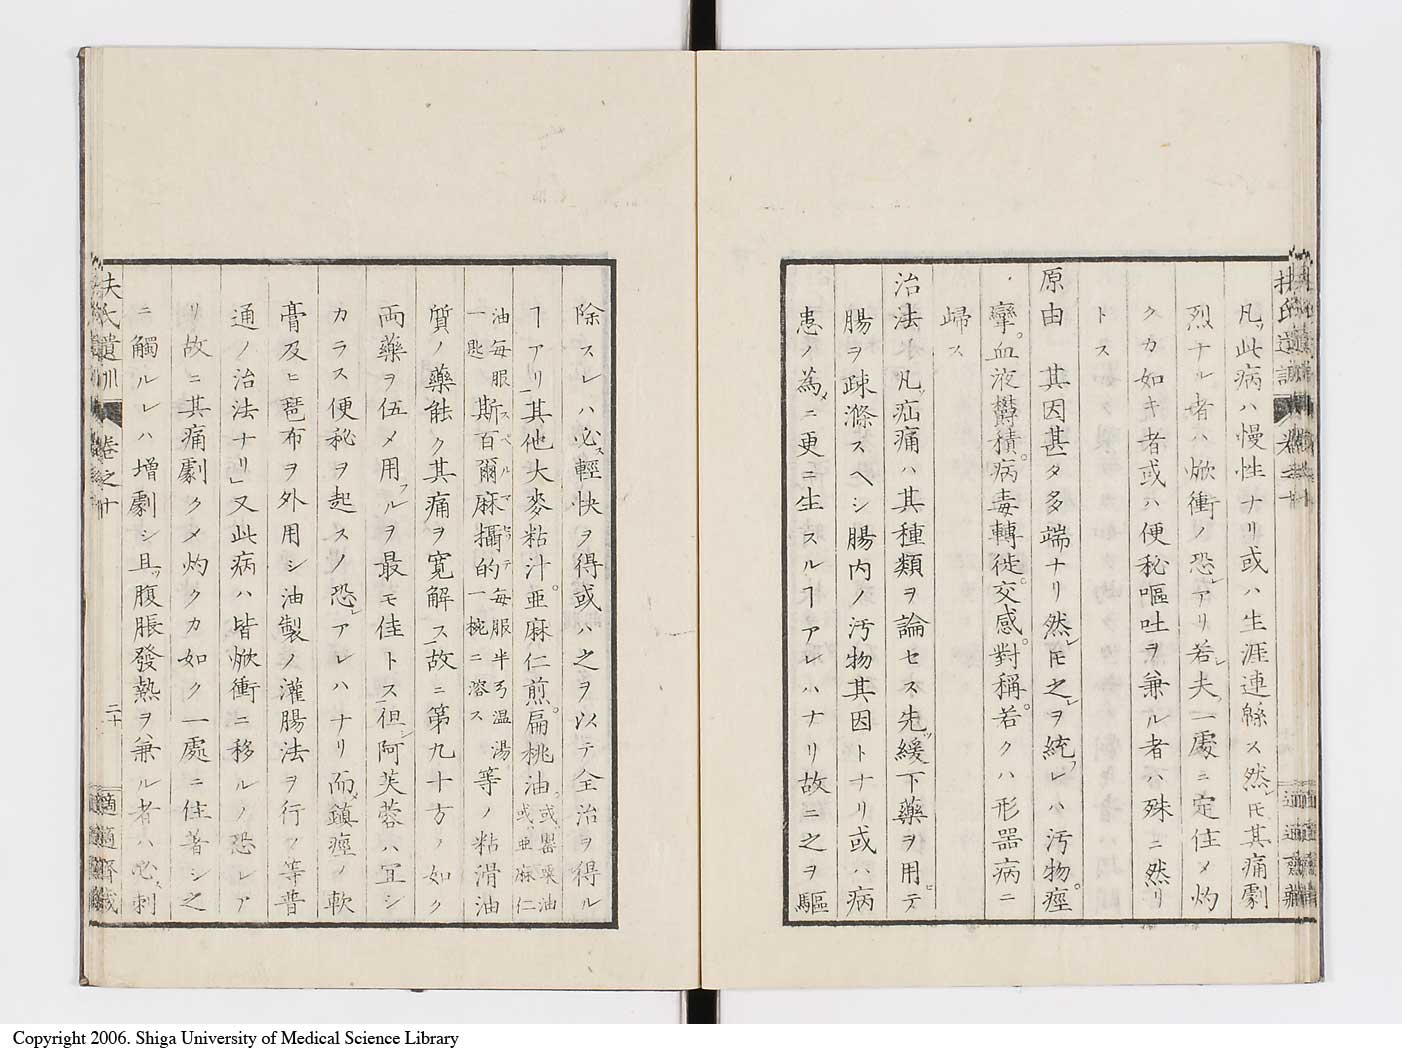 扶氏遺訓 卷之十 適適齋藏
凡ッ此病ハ慢性ナリ或ハ生涯連緜ス然レモ其痛劇
烈ナル者ハ焮衝ノ恐レアリ若レ夫ッ一處ニ定住メ灼
クカ如キ者或ハ便秘嘔吐ヲ兼ル者ハ殊ニ然リ
トス
原由 其因甚タ多端ナリ然レモ之レヲ統フレハ汚物。痙
攣。血液欝積。病毒轉徙。交感。對稱。若クハ形器病ニ
歸ス
治法 凡ソ疝痛ハ其種類ヲ論セス先ッ緩下藥ヲ用ヒテ
腸ヲ疎滌スヘシ腸内ノ汚物其因トナリ或ハ病
患ノ為メニ更ニ生スルヿアレハナリ故ニ之ヲ驅
除スレハ必ス輕快ヲ得或ハ之ヲ以テ全治ヲ得ル
ヿアリ」其他大麥粘汁。亜麻仁煎。扁桃油。或ハ罌粟油或ハ亜麻仁
油毎服一匙 斯百爾麻攝的スペルマセテ 毎服半弓温湯一椀ニ溶ス 等ノ粘滑油
質ノ藥能ク其痛ヲ寛解ス」故ニ第九十方ノ如ク
両藥ヲ伍メ用フルヲ最モ佳トス」但シ阿芙蓉ハ宜シ
カラス便秘ヲ起スノ恐レアレハナリ」而メ鎮痙ノ軟
膏及ヒ琶布ヲ外用シ油製ノ灌腸法ヲ行フ等普
通ノ治法ナリ」又此病ハ皆焮衝ニ移ルノ恐レア
リ故ニ其痛劇クメ灼クカ如ク一處ニ住著シ之
ニ觸ルレハ増劇シ且ッ腹脹發熱ヲ兼ル者ハ必ス刺
扶氏遺訓 卷之十 二十 適適齋藏
Copyright 2006. Shiga University of Medical Science Library